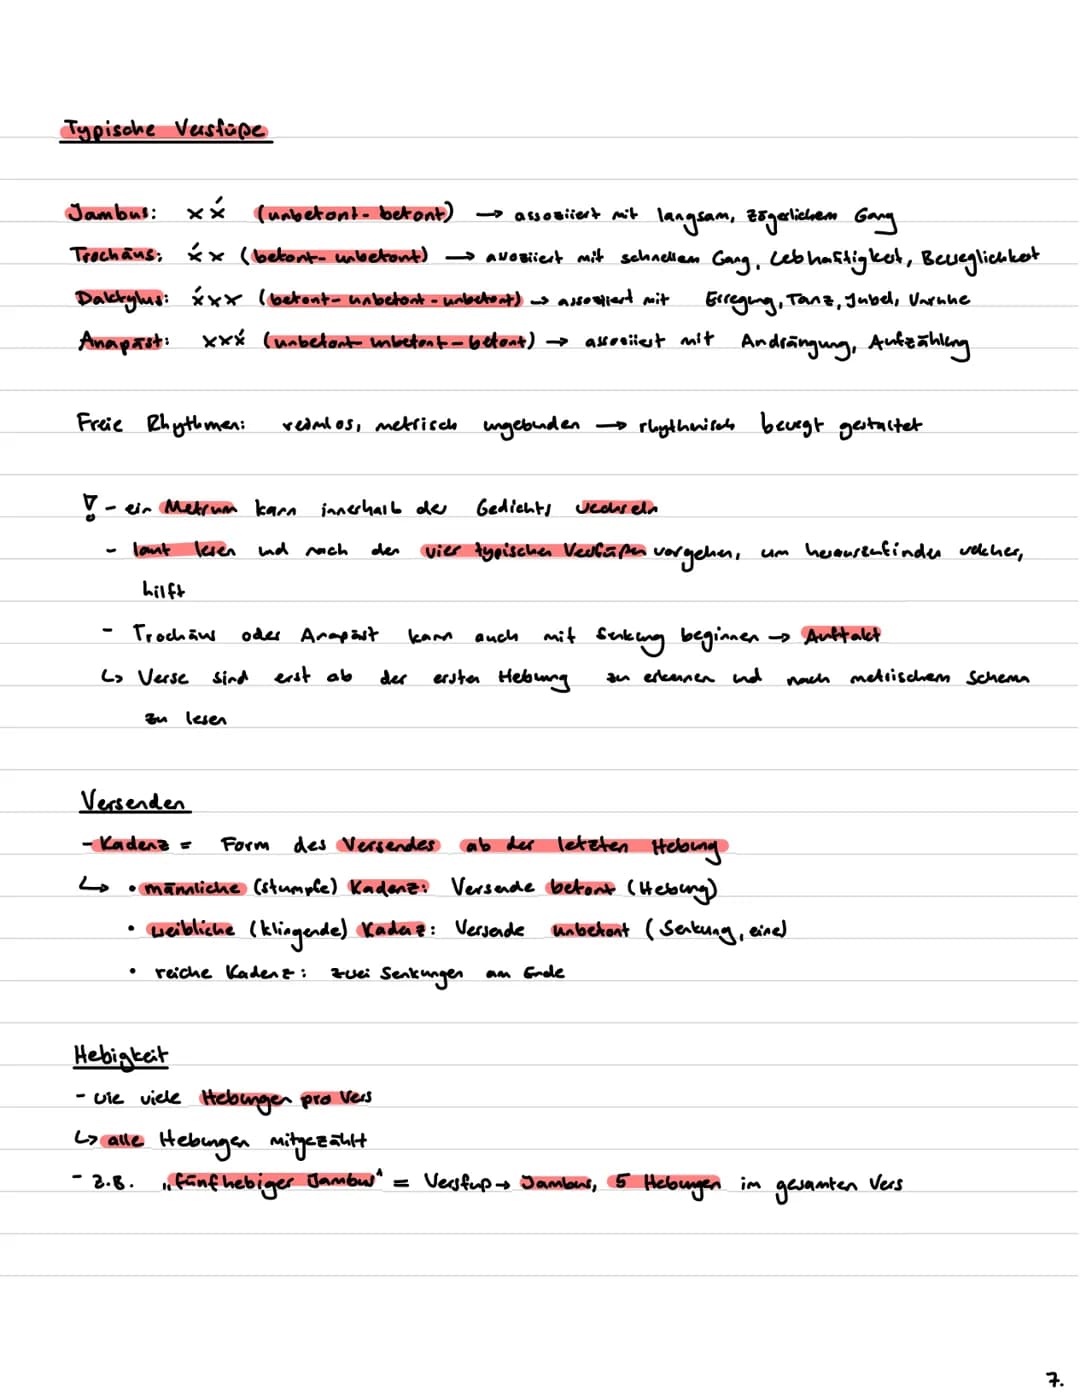 Typische Versfüße
Jambus: xx́ (unbetont- betont) → assoziiert mit langsam, zögerlichem Gang
Trochäus: x́x (betont- unbetont) → assoziiert mit schnellem Gang, Lebhaftigkeit, Beweglichkeit
Daktylus: x́xx (betont- unbetont - unbetont) → assoziiert mit Erregung, Tanz, Jubel, Unruhe
Anapäst: xxx́ (unbetont- unbetont - betont) → assoziiert mit Andrängung, Aufzählung
Freie Rhythmen: reimlos, metrisch ungebunden → rhythmisch bewegt gestaltet
! - ein Metrum kann innerhalb des Gedichts wechseln
- laut lesen und nach den vier typischen Versfüßen vorgehen, um herauszufinden welcher,
hilft
- Trochäus oder Anapäst kann auch mit Senkung beginnen → Auftakt
↳ Verse sind erst ab der ersten Hebung zu erkennen und nach metrischem Schema
zu lesen
Versenden
- Kadenz = Form des Versendes ab der letzten Hebung
↳ • männliche (stumpfe) Kadenz: Versende betont (Hebung)
• weibliche (klingende) Kadenz: Versende unbetont (Senkung, eine)
• reiche Kadenz: zwei Senkungen am Ende
Hebigkeit
- wie viele Hebungen pro Vers
↳ alle Hebungen mitgezählt
- z.B. „fünfhebiger Jambus" = Versfuß → Jambus, 5 Hebungen im gesamten Vers
7.